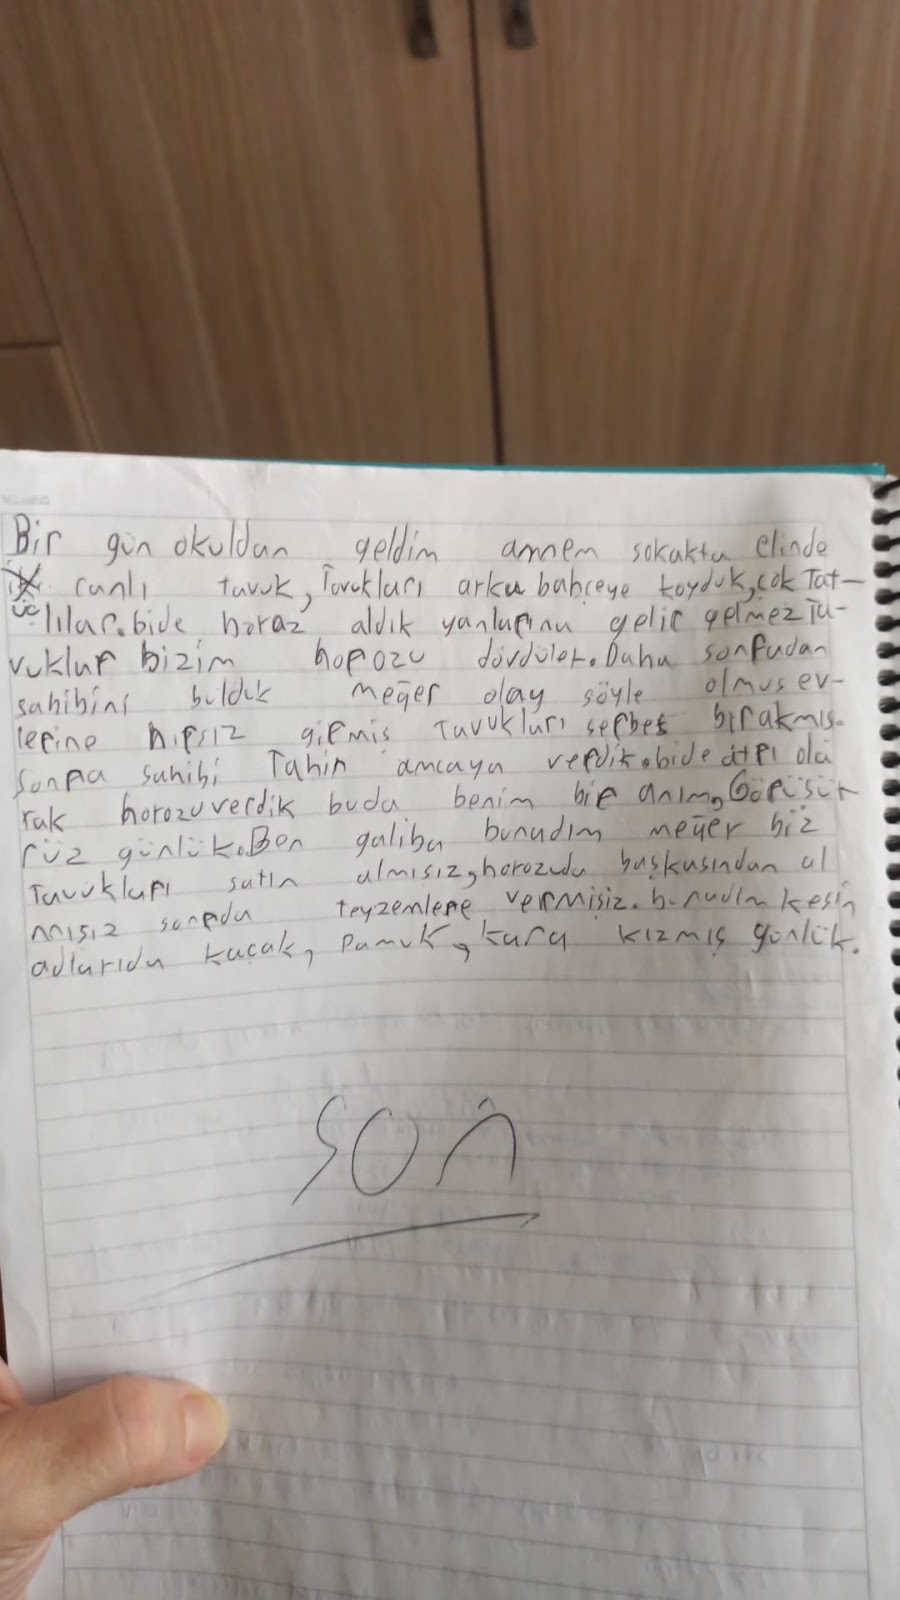 Bir gün okuldan geldim annem sokakta elinde
üç canlı tavuk, Tavukları arka bahçeye koyduk, çok Tat-
lılar. bide horaz aldık yanlarına gelir gelmez Ta-
vuklar bizim horozu dövdüler. Daha sonradan
sahibini bulduk meğer olay söyle olmus ev-
lerine hırsız girmiş Tavukları serbes bırakmıs.
Sonra sahibi Tahir amcaya verdik. bide ola
rak horozu verdik buda benim bir anım, Görüsür
rüz günlük. Ben galiba bunadım meğer biz
Tavukları satın almısız, horozuda başkasından al
mısız sonrada teyzemlere vermişiz. bunadım kesin
adlarıda kaçak, Pamuk, kara kızmış günlük.
SON